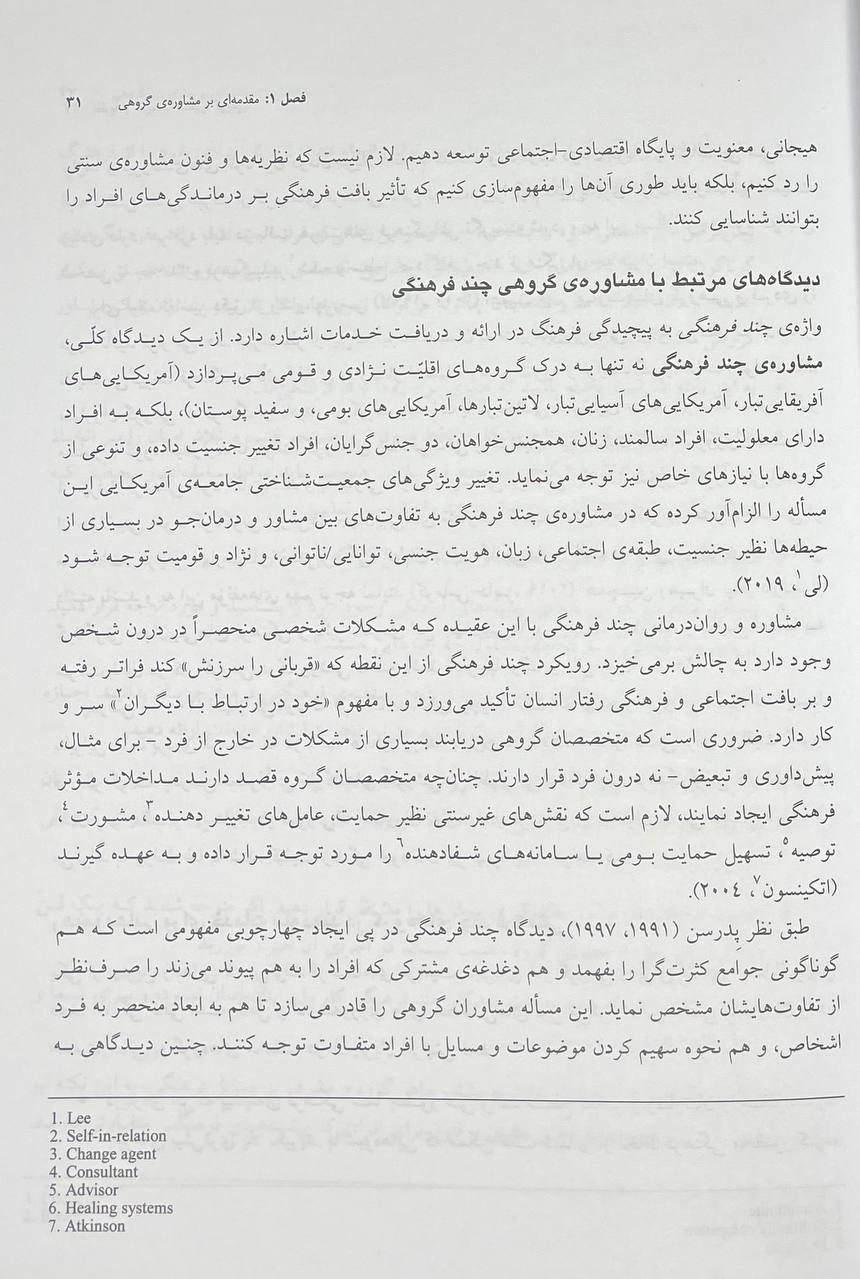 فصل ۱: مقدمه‌ای بر مشاوره‌ی گروهی ۳۱
هیجانی، معنویت و پایگاه اقتصادی-اجتماعی توسعه دهیم. لازم نیست که نظریه‌ها و فنون مشاوره‌ی سنتی
را رد کنیم، بلکه باید طوری آن‌ها را مفهوم‌سازی کنیم که تأثیر بافت فرهنگی بر درماندگی‌های افراد را
بتوانند شناسایی کنند.
دیدگاه‌های مرتبط با مشاوره‌ی گروهی چند فرهنگی
واژه‌ی چند فرهنگی به پیچیدگی فرهنگ در ارائه و دریافت خدمات اشاره دارد. از یک دیدگاه کلّی،
مشاوره‌ی چند فرهنگی نه تنها به درک گروه‌های اقلیّت نژادی و قومی می‌پردازد (آمریکایی‌های
آفریقایی‌تبار، آمریکایی‌های آسیایی‌تبار، لاتین‌تبارها، آمریکایی‌های بومی، و سفید پوستان)، بلکه به افراد
دارای معلولیت، افراد سالمند، زنان، همجنس‌خواهان، دو جنس‌گرایان، افراد تغییر جنسیت داده، و تنوعی از
گروه‌ها با نیازهای خاص نیز توجه می‌نماید. تغییر ویژگی‌های جمعیت‌شناختی جامعه‌ی آمریکایی این
مسأله را الزام‌آور کرده که در مشاوره‌ی چند فرهنگی به تفاوت‌های بین مشاور و درمان‌جو در بسیاری از
حیطه‌ها نظیر جنسیت، طبقه‌ی اجتماعی، زبان، هویت جنسی، توانایی/ناتوانی، و نژاد و قومیت توجه شود
(لی۱، ۲۰۱۹).
مشاوره و روان‌درمانی چند فرهنگی با این عقیده که مشکلات شخصی منحصراً در درون شخص
وجود دارد به چالش برمی‌خیزد. رویکرد چند فرهنگی از این نقطه که «قربانی را سرزنش» کند فراتر رفته
و بر بافت اجتماعی و فرهنگی رفتار انسان تأکید می‌ورزد و با مفهوم «خود در ارتباط با دیگران۲» سر و
کار دارد. ضروری است که متخصصان گروهی دریابند بسیاری از مشکلات در خارج از فرد - برای مثال،
پیش‌داوری و تبعیض- نه درون فرد قرار دارند. چنان‌چه متخصصان گروه قصد دارند مداخلات مؤثر
فرهنگی ایجاد نمایند، لازم است که نقش‌های غیرسنتی نظیر حمایت، عامل‌های تغییر دهنده۳، مشورت۴،
توصیه۵، تسهیل حمایت بومی یا سامانه‌های شفادهنده۶ را مورد توجه قرار داده و به عهده گیرند
(اتکینسون۷، ۲۰۰۴).
طبق نظر پدرسن (۱۹۹۱، ۱۹۹۷)، دیدگاه چند فرهنگی در پی ایجاد چهارچوبی مفهومی است که هم
گوناگونی جوامع کثرت‌گرا را بفهمد و هم دغدغه‌ی مشترکی که افراد را به هم پیوند می‌زند را صرف‌نظر
از تفاوت‌هایشان مشخص نماید. این مسأله مشاوران گروهی را قادر می‌سازد تا هم به ابعاد منحصر به فرد
اشخاص، و هم نحوه سهیم کردن موضوعات و مسایل با افراد متفاوت توجه کنند. چنین دیدگاهی به
1. Lee
2. Self-in-relation
3. Change agent
4. Consultant
5. Advisor
6. Healing systems
7. Atkinson